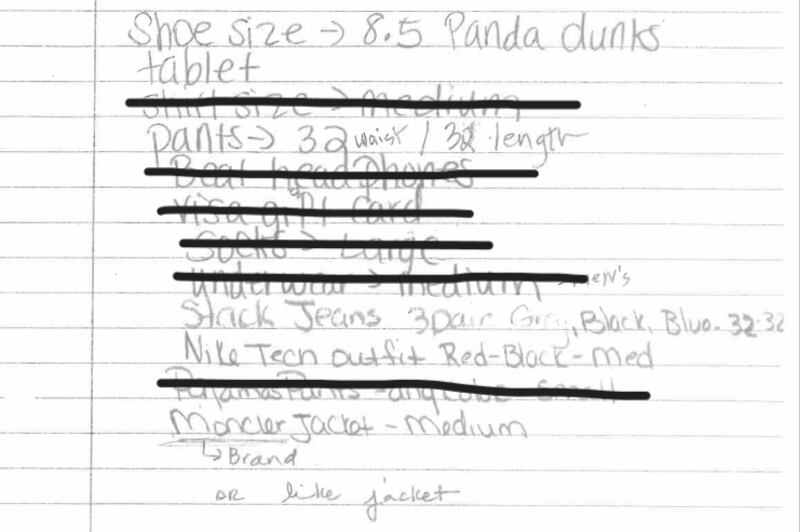 Shoe size → 8.5 Panda dunks
tablet
shirt size → medium
pants → 32 waist / 32 length
Beat headphones
visa gift card
Socks → Large
underwear → medium → men's
Stack Jeans 3pair Grey, Black, Blue. 32-32
Nike Tech outfit Red-Black-Med
Pajamas Pants - any color - Small
Moncler Jacket - Medium
↳ Brand
OR like jacket